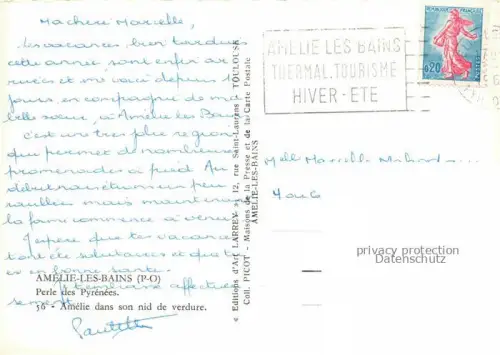 Ma chère Marcelle,
Les vacances bien tardives
cette année sont enfin ar-
rivées et me voici depuis
jours, en compagnie de ma
belle sœur, à Amélie les Bains
C'est un très region
qui permet de nombreuses
promenades à pied. Au
début nous étions un peu
rouillées mais maintenant
la forme commence à venir.
J'espère que tes vacances
ont été salutaires et que tu
es en bonne santé.
Je t'embrasse affectueu-
sement.
AMÉLIE-LES-BAINS (P-O)
Perle des Pyrénées.
56 - Amélie dans son nid de verdure.
« Editions d'Art LARREY » 12, rue Saint-Laurent - TOULOUSE
Coll. PICOT - Maisons de la Presse et de la Carte Postale
AMÉLIE-LES-BAINS
AMELIE LES BAINS
THERMAL.TOURISME
HIVER-ETE
REPUBLIQUE FRANÇAISE
0,20
Melle Marcelle
privacy protection
Datenschutz